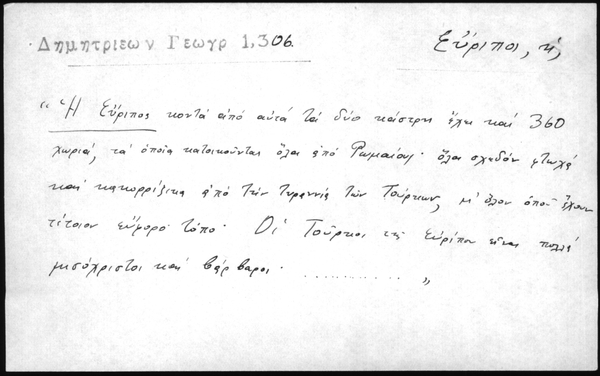 Δημητριεων Γεωγρ 1,306.
Εὔριποι, ἡ,
"Ἡ Εὔριπος κοντά ἀπό αὐτά τά δύο κάστρη ἔχει καί 360
χωριά, τά ὁποῖα κατοικοῦνται ὅλα ἀπό Ρωμαίους· ὅλα σχεδόν φτωχά
καί κακορρίζικα ἀπό τήν τυραννία τῶν Τούρκων, μ' ὅλον ὁπού ἔχουν
τέτοιον εὔμορφο τόπο· Οἱ Τοῦρκοι τῆς Εὐρίπου εἶναι πολλά
μισόχριστοι καί βάρβαροι· .............. "